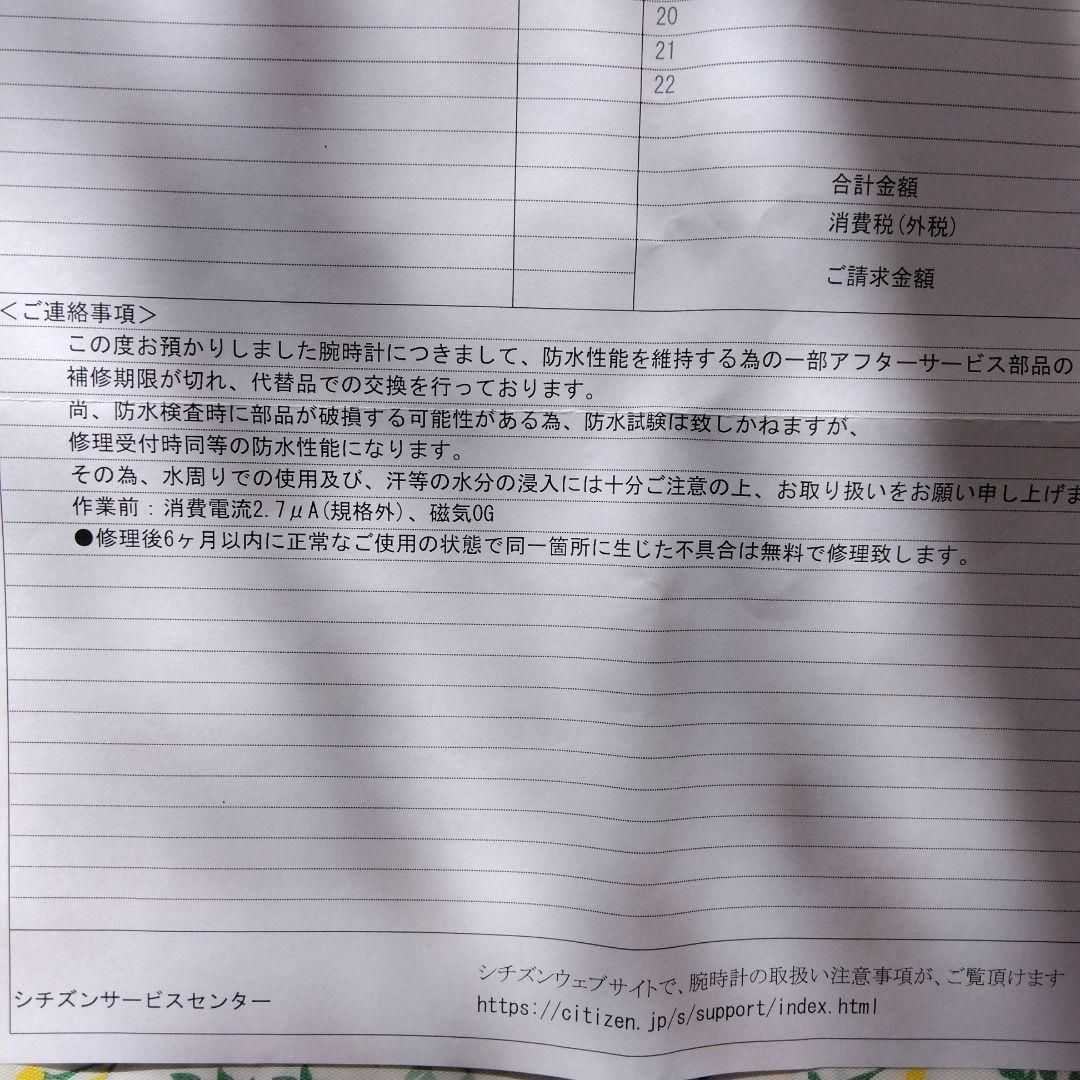 20
21
22
合計金額
消費税(外税)
ご請求金額
＜ご連絡事項＞
この度お預かりしました腕時計につきまして、防水性能を維持する為の一部アフターサービス部品の
補修期限が切れ、代替品での交換を行っております。
尚、防水検査時に部品が破損する可能性がある為、防水試験は致しかねますが、
修理受付時同等の防水性能になります。
その為、水周りでの使用及び、汗等の水分の浸入には十分ご注意の上、お取り扱いをお願い申し上げま
作業前：消費電流2.7μA(規格外)、磁気0G
●修理後6ヶ月以内に正常なご使用の状態で同一箇所に生じた不具合は無料で修理致します。
シチズンウェブサイトで、腕時計の取扱い注意事項が、ご覧頂けます
シチズンサービスセンター
https://citizen.jp/s/support/index.html